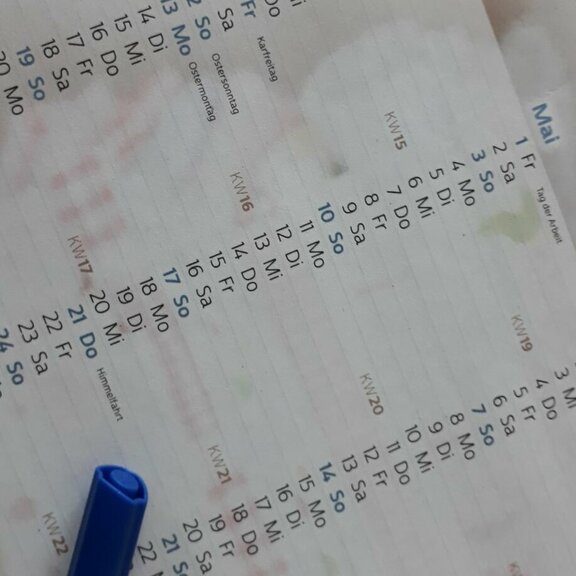 Do
Fr Karfreitag
Sa
So Ostersonntag
13 Mo Ostermontag
14 Di
15 Mi
16 Do
17 Fr
18 Sa
19 So
20 Mo
KW15
KW16
KW17
Mai
1 Fr Tag der Arbeit
2 Sa
3 So
4 Mo
5 Di
6 Mi
7 Do
8 Fr
9 Sa
10 So
11 Mo
12 Di
13 Mi
14 Do
15 Fr
16 Sa
17 So
18 Mo
19 Di
20 Mi
21 Do Himmelfahrt
22 Fr
23 Sa
24 So
KW19
KW20
KW21
KW22
3 Mi
4 Do
5 Fr
6 Sa
7 So
8 Mo
9 Di
10 Mi
11 Do
12 Fr
13 Sa
14 So
15 Mo
16 Di
17 Mi
18 Do
19 Fr
20 Sa
21 So
22
KW